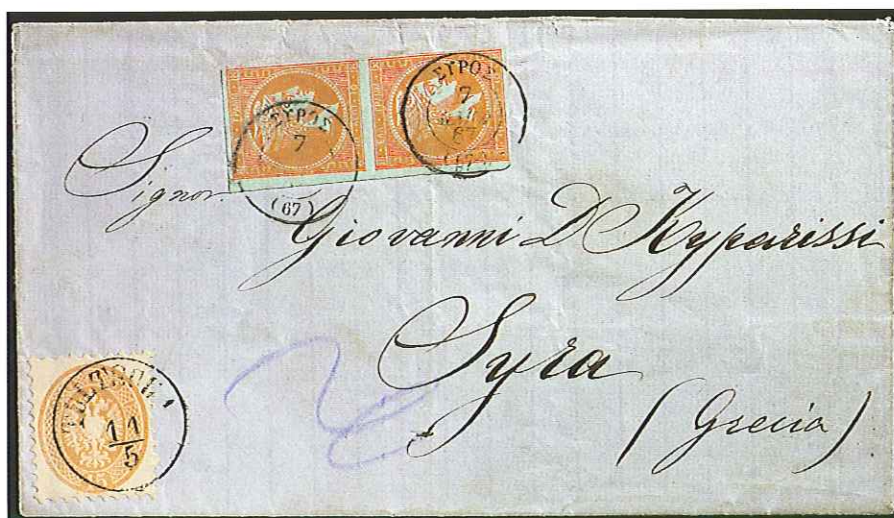 ΣΥΡΟΣ
7
(67)
ΣΥΡΟΣ
7
67
(67)
Signor.
Giovanni D Kyparissi
Syra
(Grecia)
11
5